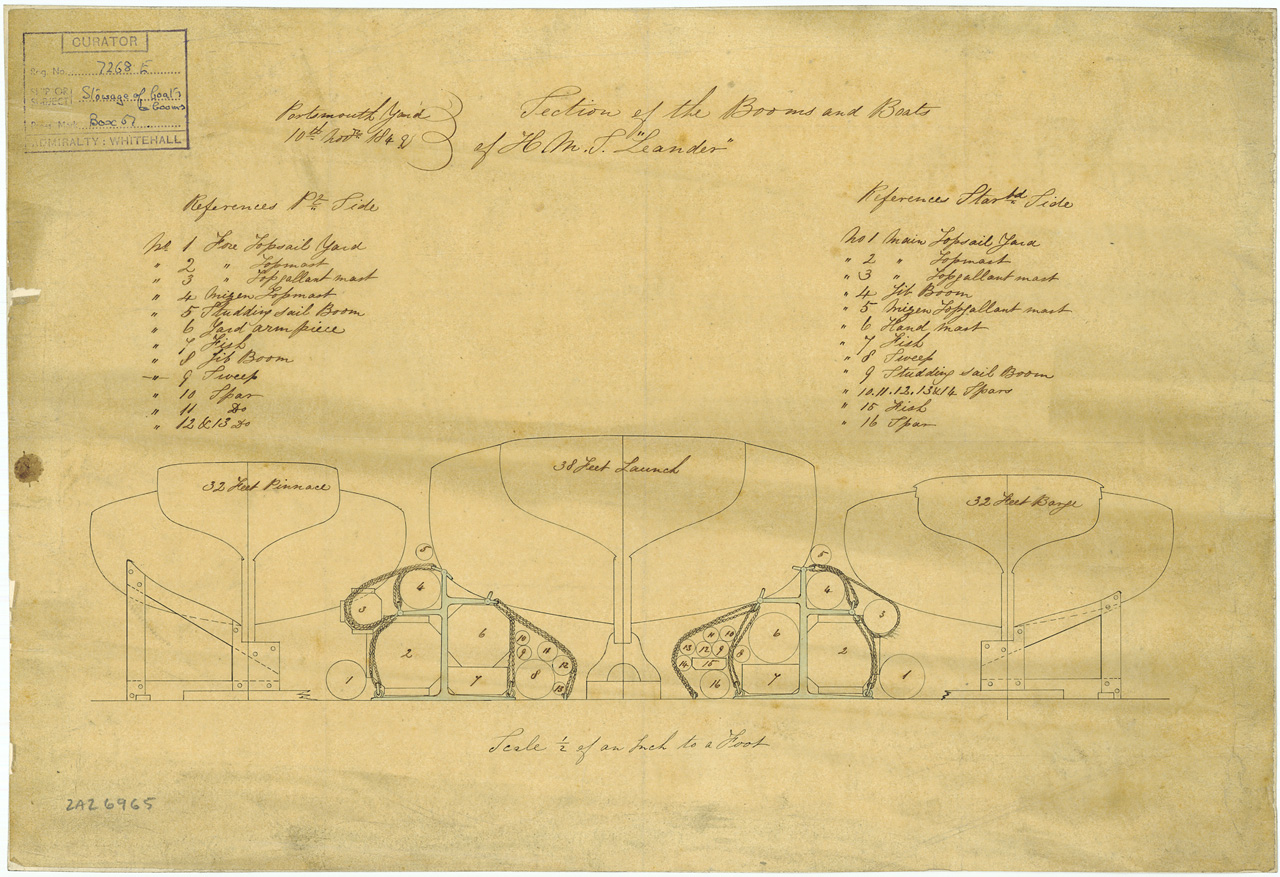 CURATOR
Reg. No. 7268 E
SHIP OR SUBJECT Stowage of Boats & Booms
Box 57
ADMIRALTY: WHITEHALL
Portsmouth Yard
10th Novr
Section of the Booms and Boats
of H.M.S. "Leander"
References Pt Side
No 1 Fore Topsail Yard
" 2 " Topmast
" 3 " Topgallant mast
" 4 Mizen Topmast
" 5 Studding sail Boom
" 6 Yard arm piece
" 7 Fish
" 8 Jib Boom
" 9 Sweep
" 10 Spar
" 11 Do
" 12 & 13 Do
References Starbd Side
No 1 Main Topsail Yard
" 2 " Topmast
" 3 " Topgallant mast
" 4 Jib Boom
" 5 Mizen Topgallant mast
" 6 Hand mast
" 7 Fish
" 8 Sweep
" 9 Studding sail Boom
" 10.11.12.13&14 Spars
" 15 Fish
" 16 Spar
32 Feet Pinnace
38 Feet Launch
32 Feet Barge
5
4
3
2
1
6
7
10
9
11
12
8
13
5
4
3
2
1
6
7
8
11
10
13
12
9
14
15
16
Scale ½ of an Inch to a Foot
ZAZ6965